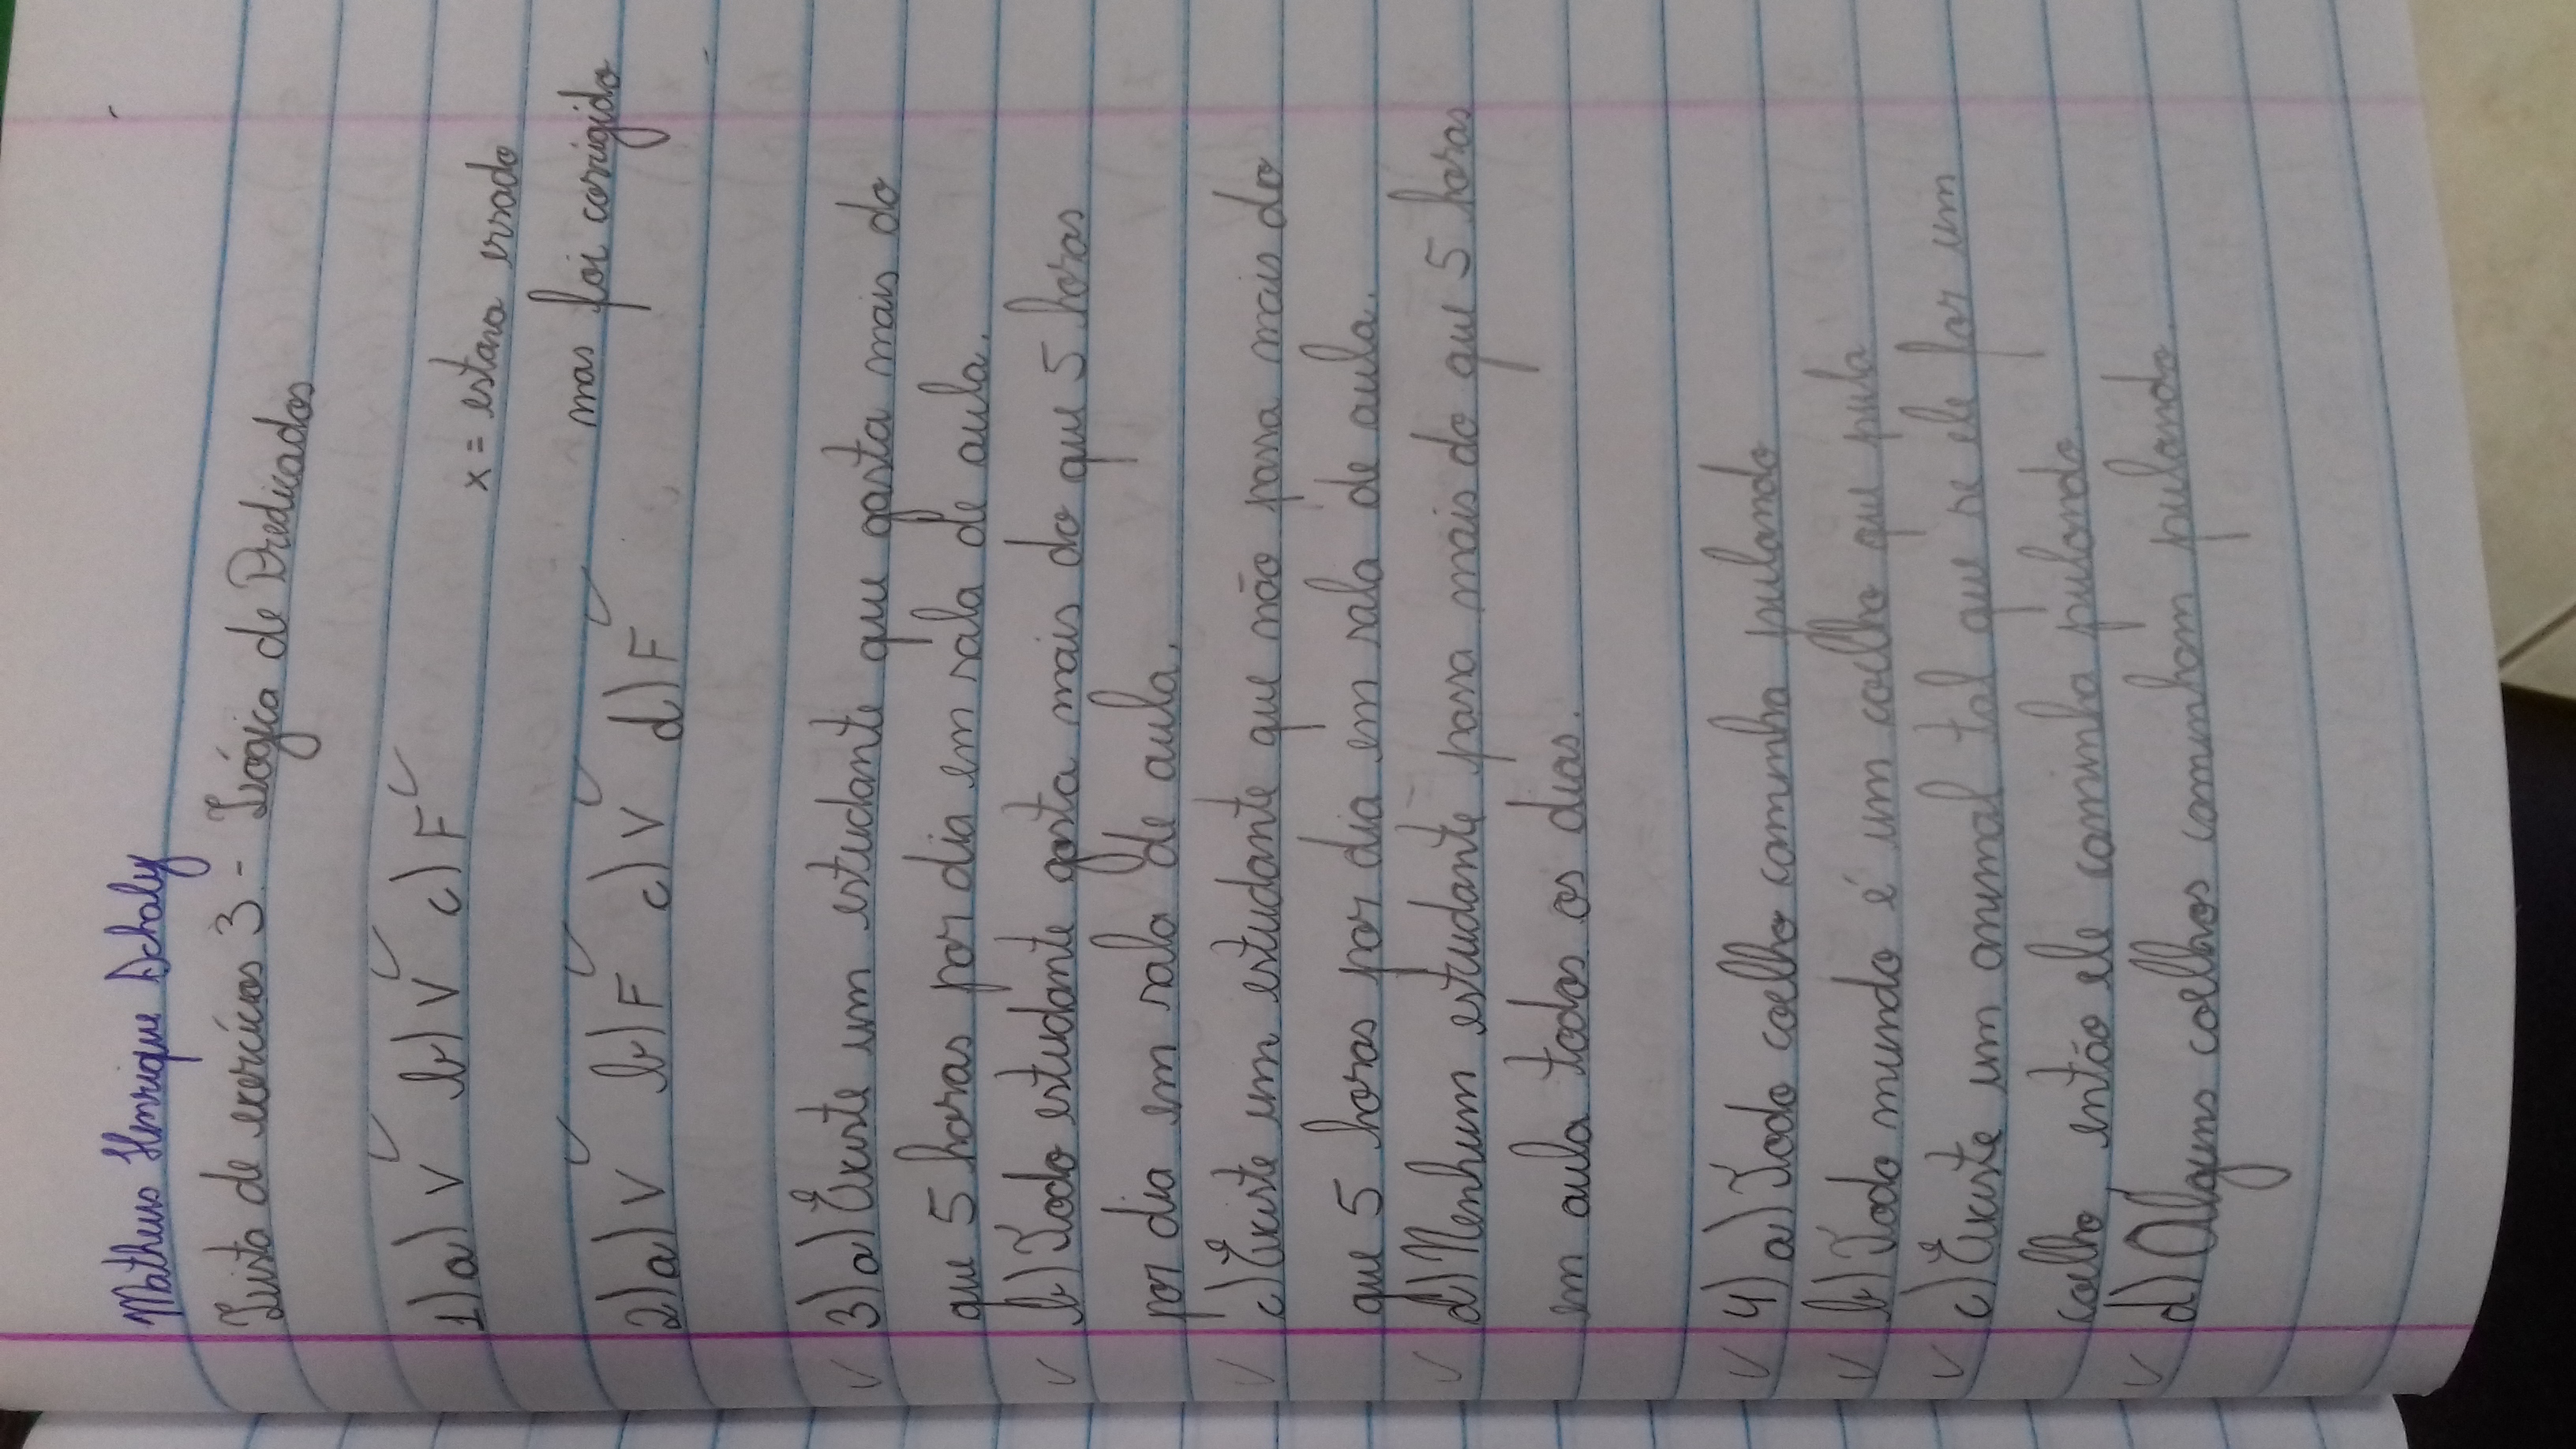 Matheus Henrique Schaly
Lista de exercícios 3 - Lógica de Predicados
1) a) V ✓ b) V ✓ c) F ✓
x = estava errado
mas foi corrigido
2) a) V ✓ b) F ✓ c) V ✓ d) F ✓
✓ 3) a) Existe um estudante que gasta mais do
que 5 horas por dia em sala de aula.
✓ b) Todo estudante gasta mais do que 5 horas
por dia em sala de aula.
✓ c) Existe um estudante que não passa mais do
que 5 horas por dia em sala de aula.
✓ d) Nenhum estudante passa mais do que 5 horas
em aula todos os dias.
✓ 4) a) Todo coelho caminha pulando
✓ b) Todo mundo é um coelho que pula
✓ c) Existe um animal tal que se ele for um
coelho, então ele caminha pulando.
✓ d) Alguns coelhos caminham pulando.